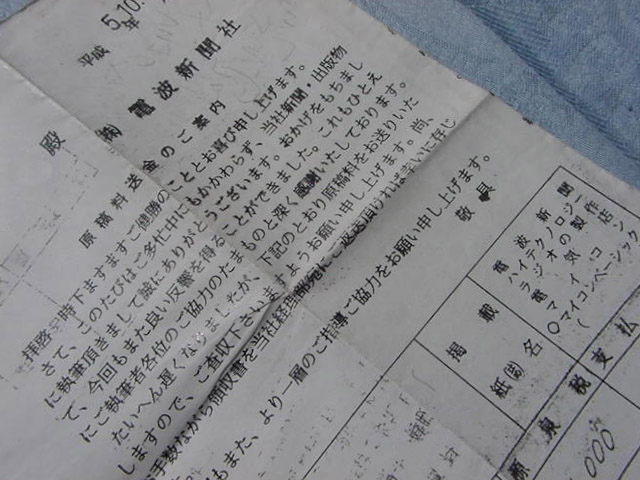 平成 5年10.
㈱電波新聞社
殿
原稿料送金のご案内
拝啓 時下ますますご健勝のこととお喜び申し上げます。
さて、このたびはご多忙中にもかかわらず、当社新聞・出版物
に執筆頂きまして誠にありがとうございます。おかげをもちまし
て、今回もまた良い反響を得ることができました。これもひとえ
にご執筆者各位のご協力のたまものと深く感謝いたしております。
たいへん遅くなりましたが、下記のとおり原稿料をお送りいた
しますので、ご査収下さいますようお願い申し上げます。尚、
お手数ながら領収書を当社経理
もまた、より一層のご指導ご協力をお願い申し上げます。
敬具
掲載
紙(誌)名
電波新聞
ハイテクノロジー
ラジオの製作
電気店
○マイコン
マイコンベーシック
(
源泉税
支払
000